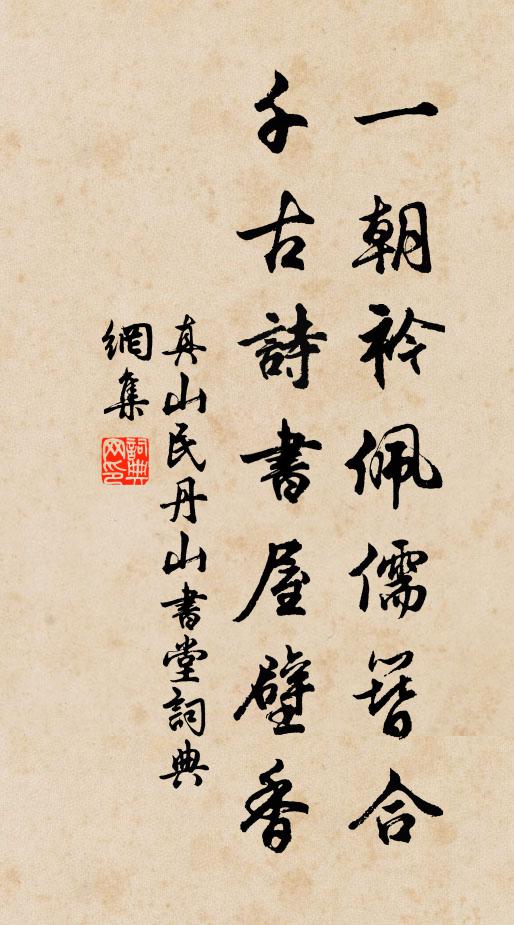 一朝衿佩儒簪合
千古詩書屋壁香
真山民丹山書堂詞典
網集
詞典网印